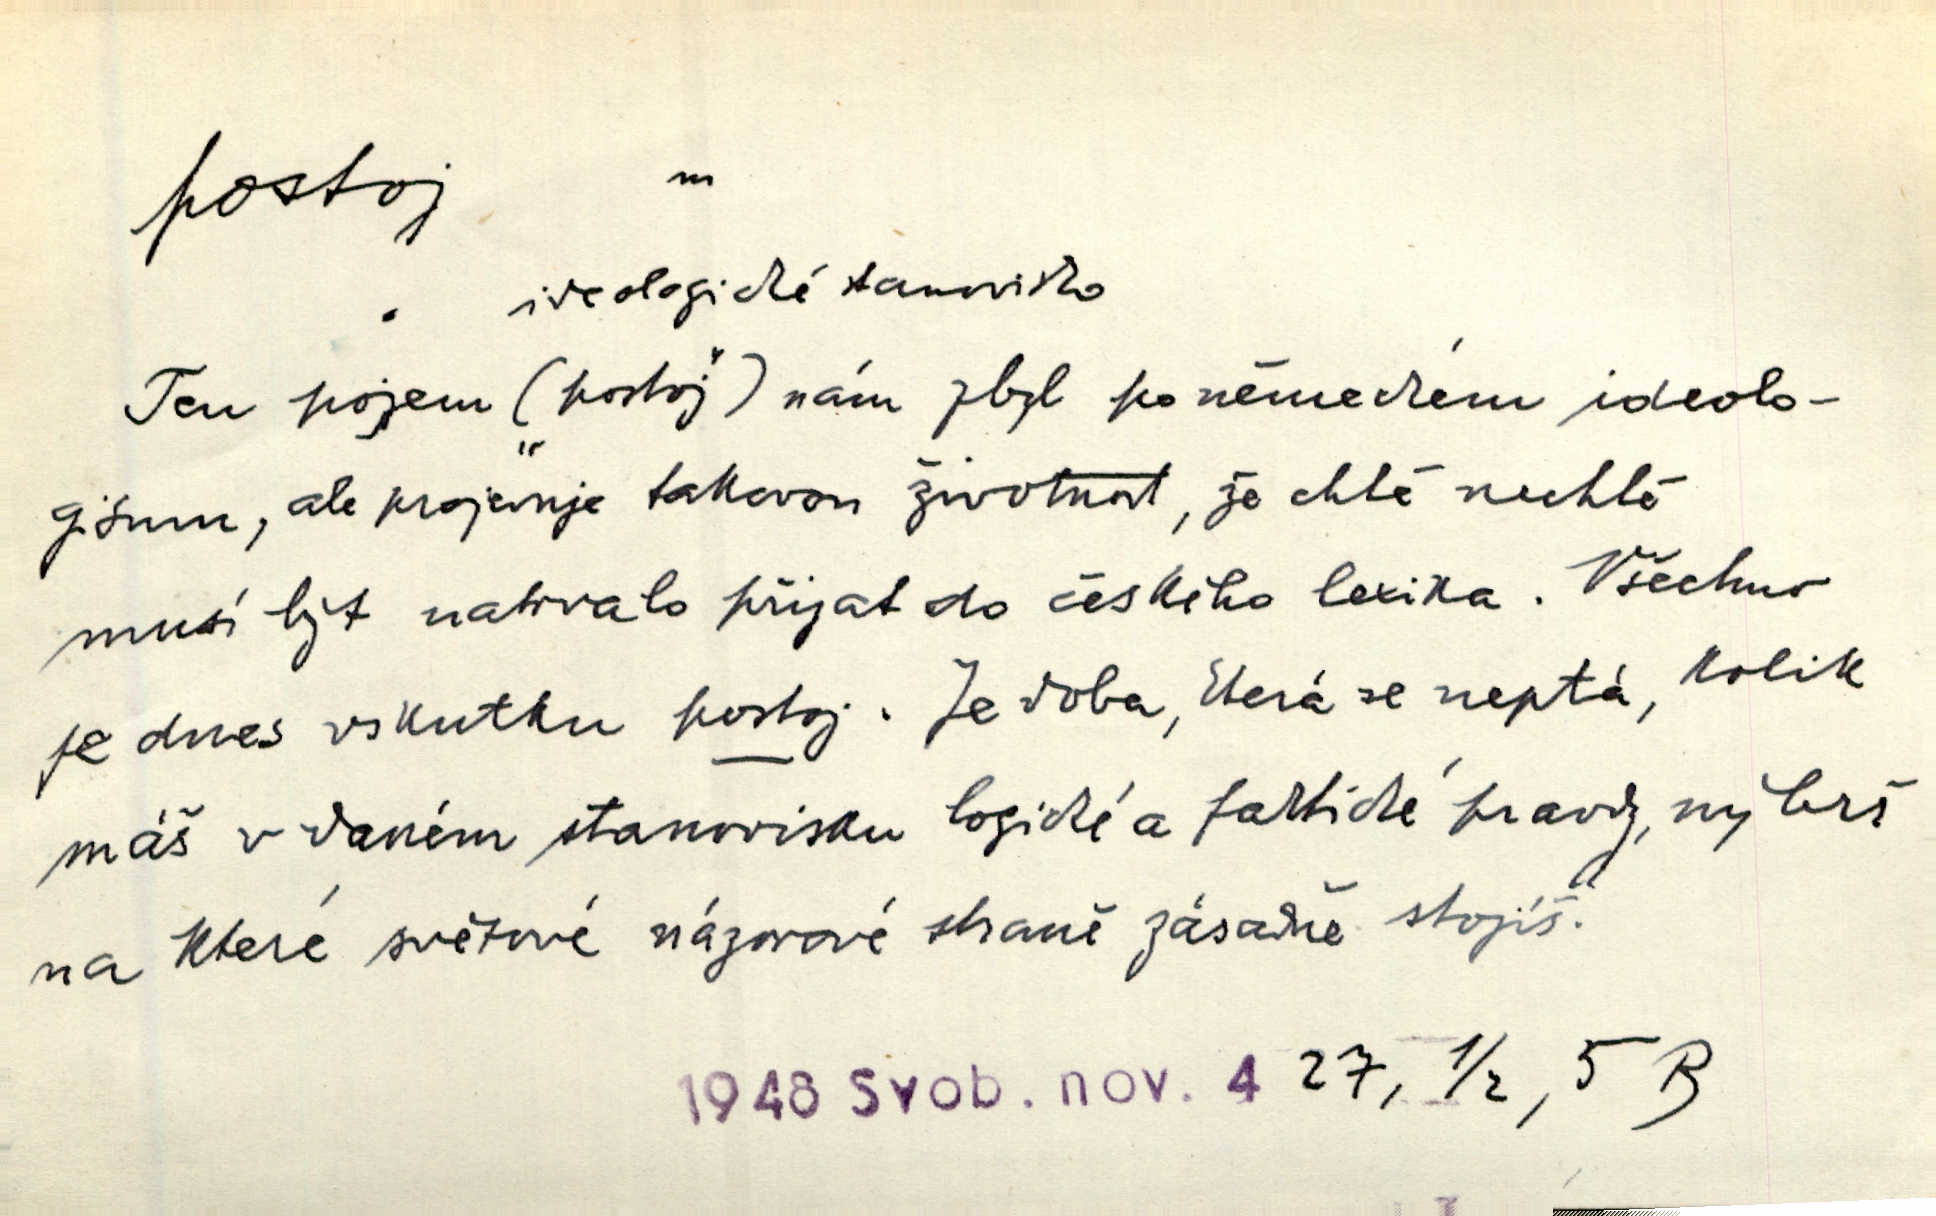 postoj m
ideologické stanovisko
Ten pojem („postoj“) nám zbyl po německém ideolo-
gismu, ale projevuje takovou životnost, že chtě nechtě
musí být natrvalo přijat do českého lexika. Všechno
je dnes vskutku postoj. Je doba, která se neptá, kolik
máš v daném stanovisku logické a faktické pravdy, nýbrž
na které světové názorové straně zásadně stojíš.
1948 Svob. nov. 4 27, 1/2, 5 B